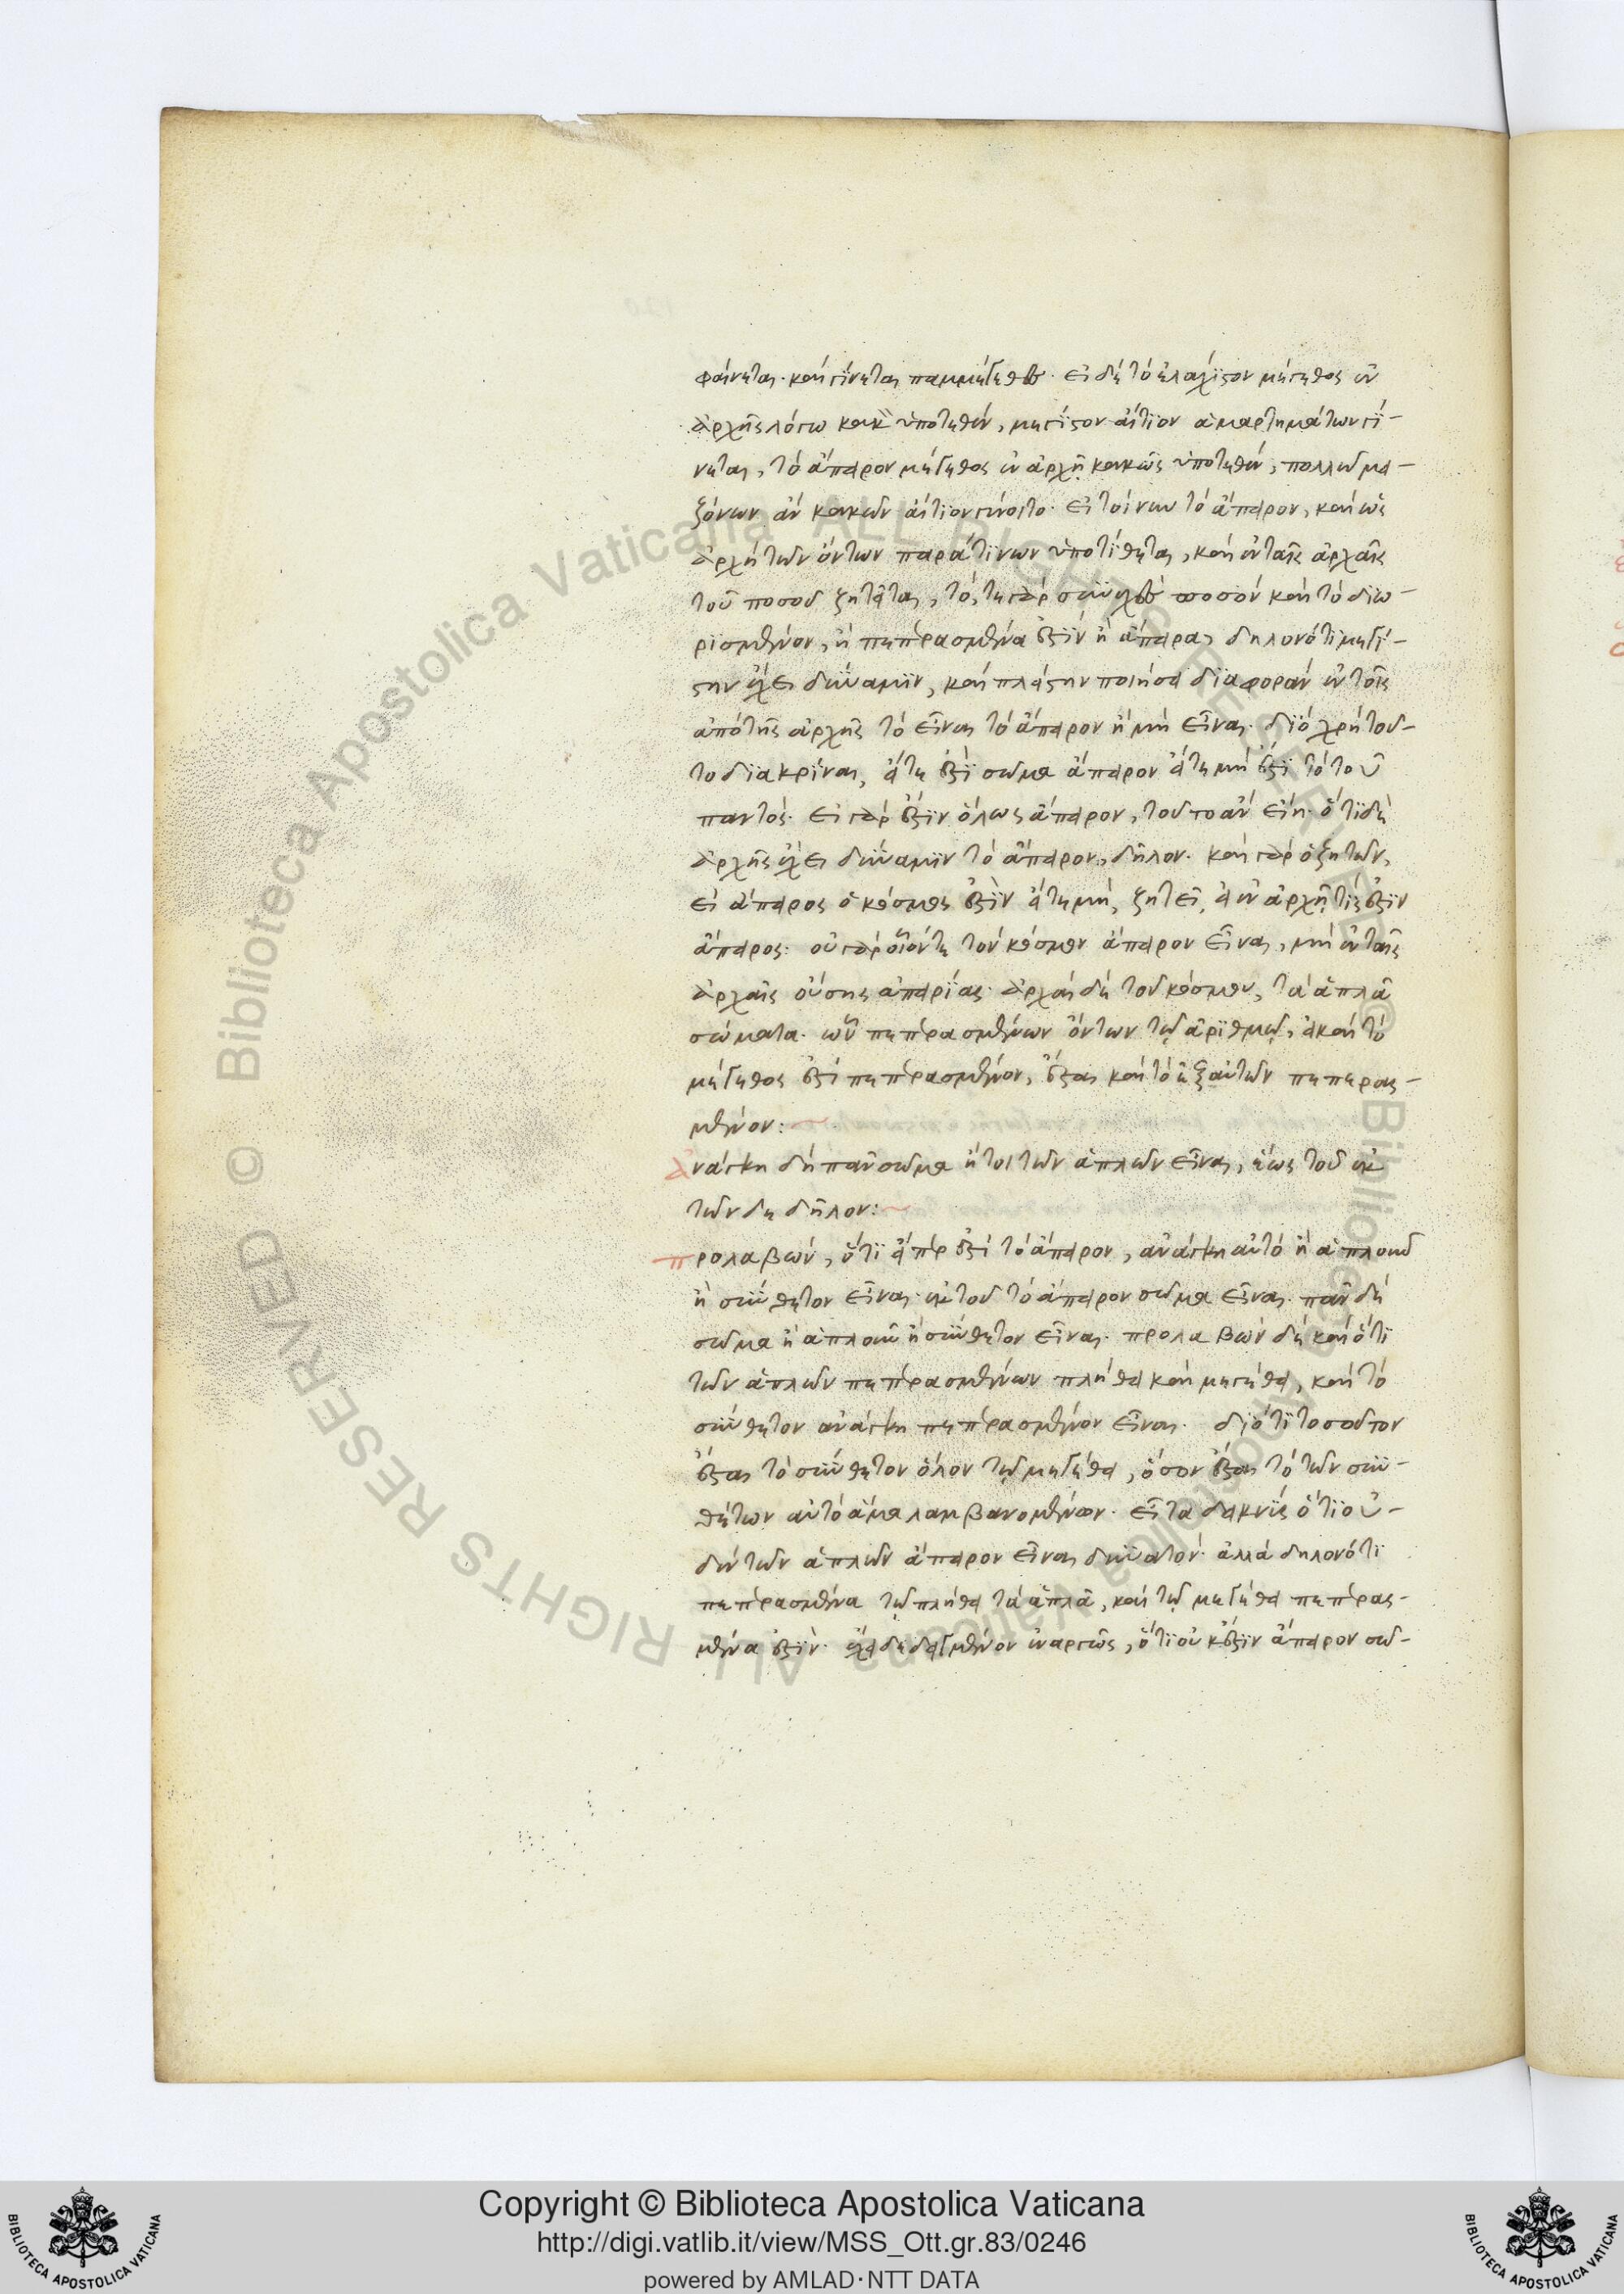 φαίνεται· καὶ γίνεται παμμέγεθες· εἰ δὲ τὸ ἐλάχιστον μέγεθος ἐν
ἀρχῆς λόγω κακῶς ὑποτεθὲν, μεγίστον αἴτιον ἁμαρτημάτων γί-
νεται, τὸ ἄπειρον μέγεθος ἐν ἀρχῇ κακῶς ὑποτεθὲν, πολλῶ μει-
ζόνων ἂν κακῶν αἴτιον γένοιτο· εἰ τοίνυν τὸ ἄπειρον, καὶ ὡς
ἀρχὴ τῶν ὄντων παρά τινων ὑποτίθεται, καὶ ἐν ταῖς ἀρχαῖς
τοῦ ποσοῦ ζητεῖται, τό, τε γὰρ συνεχὲς ποσὸν καὶ τὸ διω-
ρισμένον, ἢ πεπερασμένα ἐστὶν ἢ ἄπειρα, δηλονότι μεγί-
στην ἔχει δύναμιν, καὶ πλείστην ποιήσει διαφορὰν ἐν τοῖς
ἀπὸ τῆς ἀρχῆς τὸ εἶναι τὸ ἄπειρον ἢ μὴ εἶναι· διὸ χρὴ τοῦ-
το διακρῖναι, εἴτε ἐστὶ σῶμα ἄπειρον εἴτε μὴ ἐστὶ τὸ τοῦ
παντός· εἰ γὰρ ἐστὶν ὅλως ἄπειρον, τοῦτο ἂν εἴη· ὅτι δὲ
ἀρχῆς ἔχει δύναμιν τὸ ἄπειρον, δῆλον· καὶ γὰρ ὁ ζητῶν,
εἰ ἄπειρος ὁ κόσμος ἐστὶν εἴτε μὴ, ζητεῖ, εἰ ἐν ἀρχῇ τίς ἐστιν
ἄπειρος· οὐ γὰρ οἷόντε τὸν κόσμον ἄπειρον εἶναι, μὴ ἐν ταῖς
ἀρχαῖς οὔσης ἀπειρίας· ἀρχαὶ δὲ τοῦ κόσμου, τὰ ἁπλᾶ
σώματα· ὧν πεπερασμένων ὄντων τῷ ἀριθμῷ, εἰ καὶ τὸ
μέγεθος ἐστὶ πεπερασμένον, ἔσται καὶ τὸ ἐξ αὐτῶν πεπερασ-
μένον:
ἀνάγκη δὴ πᾶν σῶμα ἤτοι τῶν ἁπλῶν εἶναι, ἕως τοῦ ἐκ
τῶν δε δῆλον:
προλαβὼν, ὅτι εἴπερ ἐστὶ τὸ ἄπειρον, ἀνάγκη αὐτὸ ἢ ἁπλοῦν
ἢ σύνθετον εἶναι· ἐκ τοῦ τὸ ἄπειρον σῶμα εἶναι· πᾶν δὲ
σῶμα ἢ ἁπλοῦν ἢ σύνθετον εἶναι· προλαβὼν δὲ καὶ ὅτι
τῶν ἁπλῶν πεπερασμένων πλήθει καὶ μεγέθει, καὶ τὸ
σύνθετον ἀνάγκη πεπερασμένον εἶναι· διότι τοσοῦτον
ἔσται τὸ σύνθετον ὅλον τῷ μεγέθει, ὅσον ἔσται τὸ τῶν συν-
θέτων αὐτὸ ἅμα λαμβανομένων· εἶτα δεικνὺς ὅτι οὐ-
δὲν τῶν ἁπλῶν ἄπειρον εἶναι δυνατόν· ἀλλὰ δηλονότι
πεπερασμένα τῷ πλήθει τὰ ἁπλᾶ, καὶ τῷ μεγέθει πεπερασ-
μένα ἐστὶν· ἔχει δεδειγμένον ἐναργῶς, ὅτι οὐκ ἔστιν ἄπειρον σῶ-
Copyright © Biblioteca Apostolica Vaticana
http://digi.vatlib.it/view/MSS_Ott.gr.83/0246
powered by AMLAD·NTT DATA